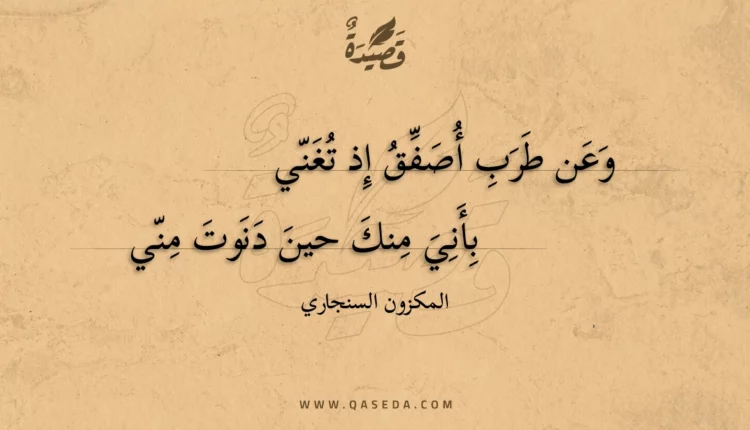 قَصِيدَةٌ
وَعَن طَرَبِ أُصَفِّقُ إِذ تُغَنّي
بِأَنِيَ مِنكَ حينَ دَنَوتَ مِنّي
المكزون السنجاري
WWW.QASEDA.COM